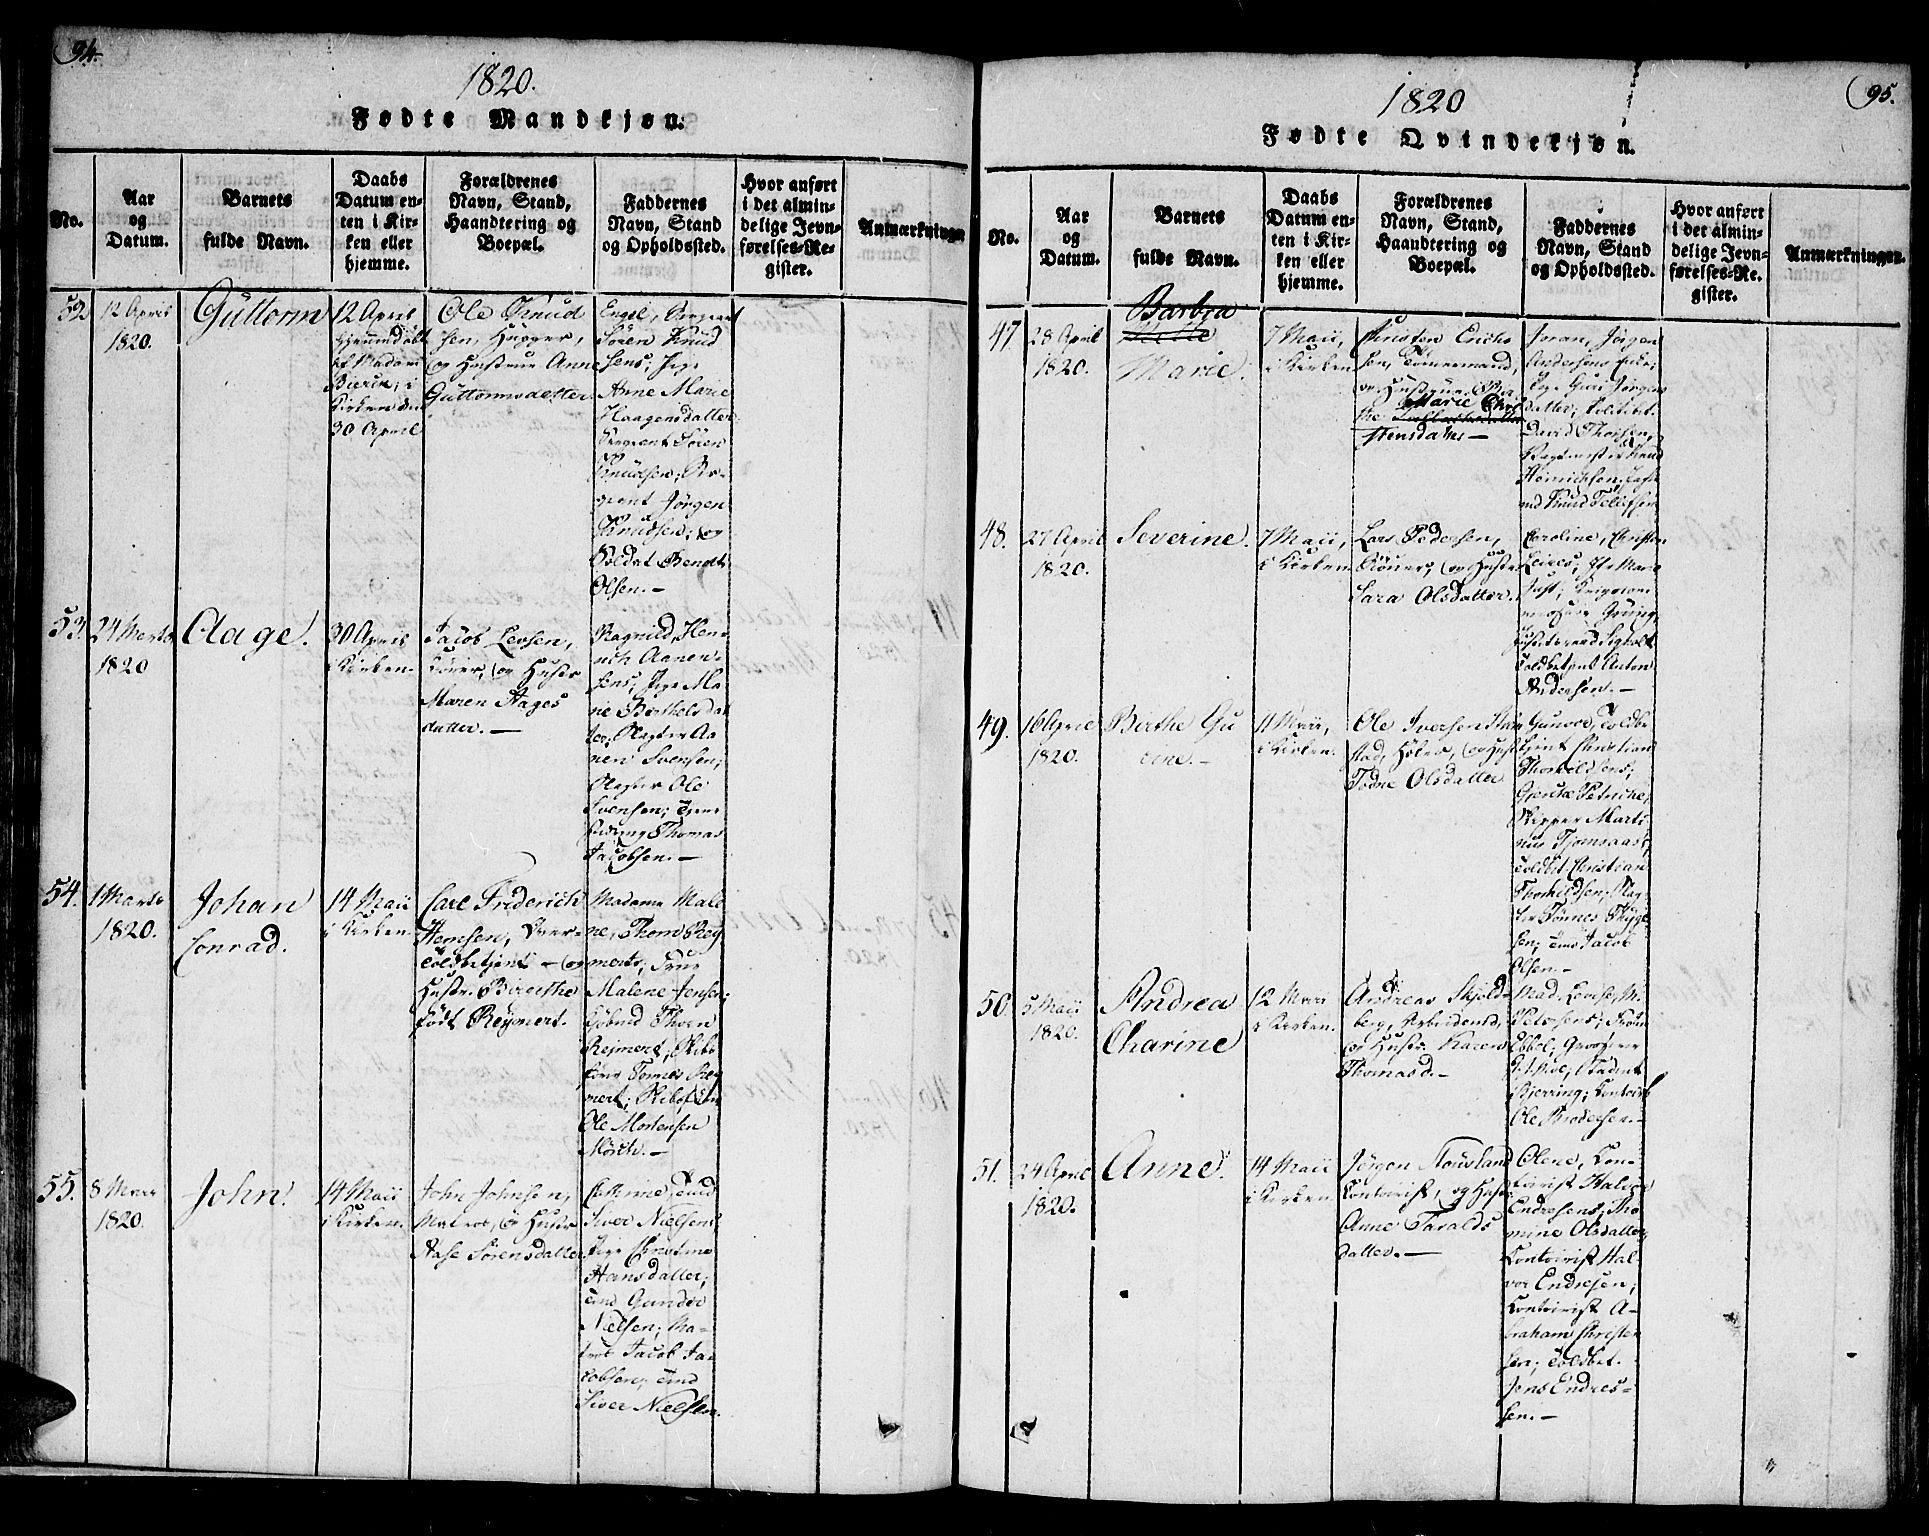 94.
1820.
Fødte Mandkjøn.
No.
Aar
og
Datum.
Barnets
fulde Navn.
Daabs
Datum en-
ten i Kir-
ken eller
hjemme.
Forældrenes
Navn, Stand,
Haandtering og
Boepæl.
Faddernes
Navn, Stand
og Opholdssted.
Hvor anført
i det almin-
delige Jevn-
førelses-Re-
gister.
Anmærkninger
52
12 April
1820.
Guttorm
12 April
hjemmedøbt
af Madam
i
Kirken den
30 April
Ole Knud
sen,
og Hustrue Anne
Guttormsdatter.
Engel, Sergeant
Sören Knud
sens; Pige
Anne Marie
Haagensdatter
Sergeant Sören
Knudsen; Ser-
geant Jörgen
Knudsen; og
Soldat Berndt
Olsen.—
53.
24 Marts
1820
Aage.
30 April
i Kirken.
Jacob Levsen,
og Hustr
Maren Aages
datter.—
Ragnild, Hen-
rich Aanen-
sens; Pige Ma-
rie Berthelsdat
ter; Aa-
nen Svensen;
Ole
Svensen;
Thomas
Jacobsen.—
54.
1 Marts
1820.
Johan
Conrad.
14 Maii
i Kirken.
Carl Friderich
Hemsen, Over-
toldbetjent — og
Hustr. Birgithe
født Reymert.
Madame Male
ne, Thom Rey
merts; Frue
Malene Jensen;
Thom
Reymert; Skibs
Tönnes Rey
mert;
Ole Mortensen
55.
8 Marts
1820.
John.
14 Maii
i Kirken.
John Johnsen,
Matros, og Hustr
Aase Sörensdatter.
Cathrine,
Siver Nielsens
Pige Christine
Hansdatter;
Gunder
Nielsen; Ma-
tros Jacob Ja-
cobsen;
Siver Nielsen.
95.
1820
Fødte Qvindekjøn.
No.
Aar
og
Datum.
Barnets
fulde Navn.
Daabs
Datum en-
ten i Kir-
ken eller
hjemme.
Forældrenes
Navn, Stand,
Haandtering og
Boepæl.
Faddernes
Navn, Stand
og Opholdssted.
Hvor anført
i det almin-
delige Jevn-
førelses-Re-
gister.
Anmærkninger.
47.
28 April
1820.
Barbra
Marie.
7 Maii,
i Kirken
Christen Erichs
sen, Tömmermand,
og Hustrue
Marie Chri
stensdatter—
Joran, Jörgen
Andersens Enke;
Pige Guri Jörgens
datter; Politibet.
David Thorsen,
Knud
Henrichsen,
Knud Tellefsen
48.
27 April
1820.
Severine.
7 Maii,
i Kirken
Lars Pedersen,
og Hustr
Sara Olsdatter.
Caroline, Christen
Marie
Toldbetjent Anton
Andersen.—
49.
16 April
1820.
Birthe Gu
rine.—
11 Maii,
i Kirken.
Ole Iversen
stad, og Hust
Todne Olsdatter
Gunvor, Toldbe
tjent Christian
Thorkildsens;
Petriche,
Skipper Marti
nus Tjomsaas;
Toldbet Christian
Thorkildsen;
Tönnes Thyge
sen; Jacob
Olsen.—
50.
5 Maii
1820.
Andrea
Charine
12 Maii
i Kirken.
Andreas Skjold-
berg, Arbeidsmd,
og Hustr. Karen
Thomasd.—
Mad.
Petersens;
Ebbel;
Student
Bjerring; Contoirist
Ole Brodersen.—
51.
24 April
1820.
Anne
14 Maii
i Kirken
Jörgen
Contoirist, og Hustr
Anne Taralds
datter.—
Olene, Con-
toirist Halvor
Endresens; Tho
mine Olsdatter;
Contoirist Hal-
vor Endresen;
Contoirist A-
braham Christen
sen; Toldbet.
Jens Endres-
sen.—